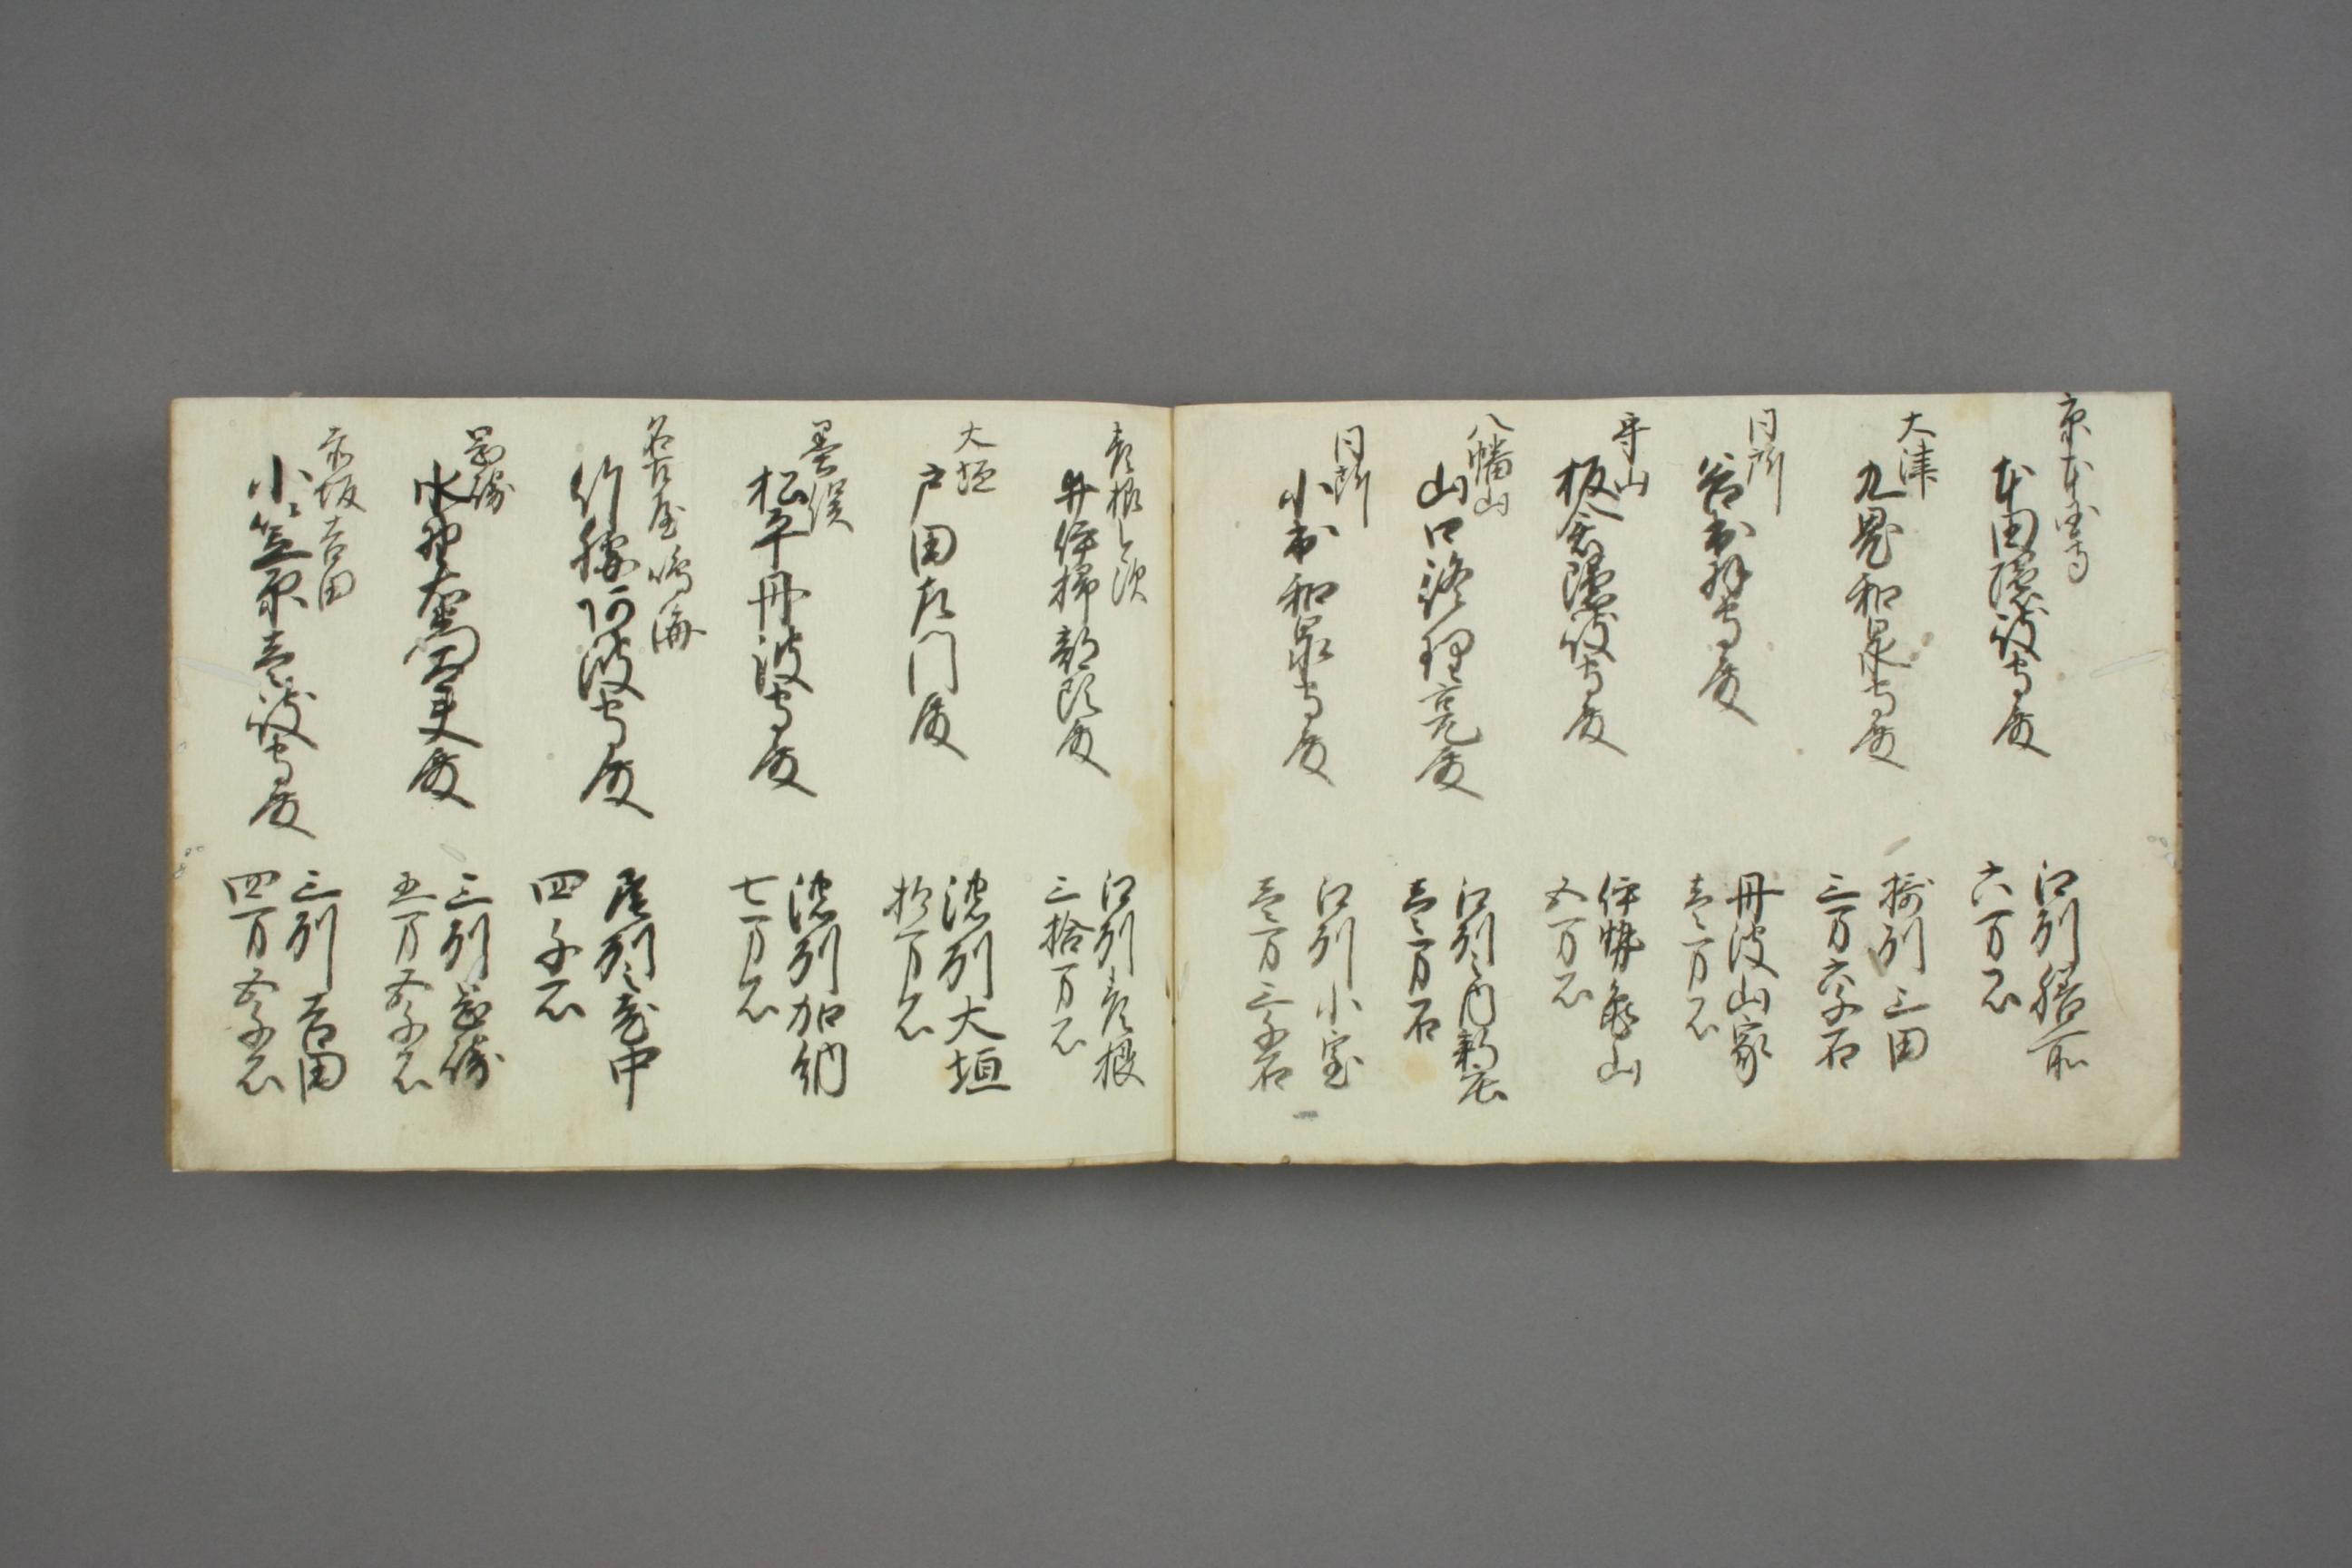 京本国寺
本田隠岐守殿
江州膳所
六万石
大津
九鬼和泉守殿
摂州三田
三万六千石
同所
谷出羽守殿
丹波山家
壱万石
守山
板倉隠岐守殿
伊勢亀山
五万石
八幡山
山口修理亮殿
江州之内
壱万石
同所
小出和泉守殿
江州小室
壱万三千石
彦根
井伊掃部頭殿
江州彦根
三拾万石
大垣
戸田左門殿
濃州大垣
拾万石
墨俣
松平丹波守殿
濃州加納
七万石
名古屋 鳴海
竹腰阿波守殿
尾州之中
四千石
岡崎
水野右衛門大夫殿
三州岡崎
五万五千石
赤坂吉田
小笠原壱岐守殿
三州吉田
四万五千石